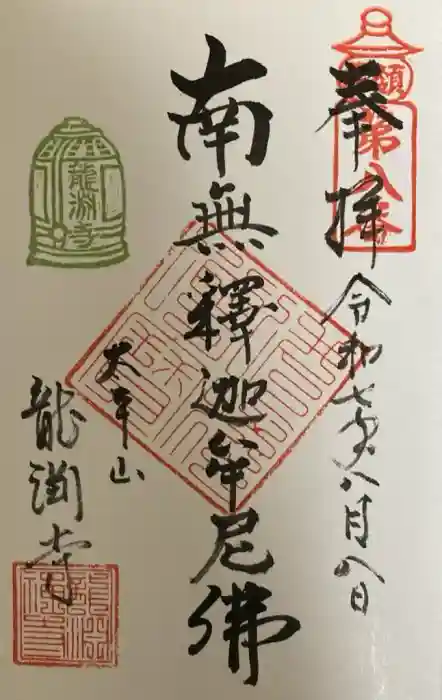 奉拝
第八番
令和七年八月八日
南無釋迦牟尼佛
太平山
龍渕寺
龍渕寺